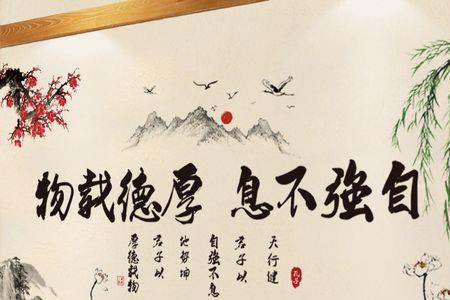 自強不息 厚德载物
天行健
君子以
自強不息
地势坤
君子以
厚德载物